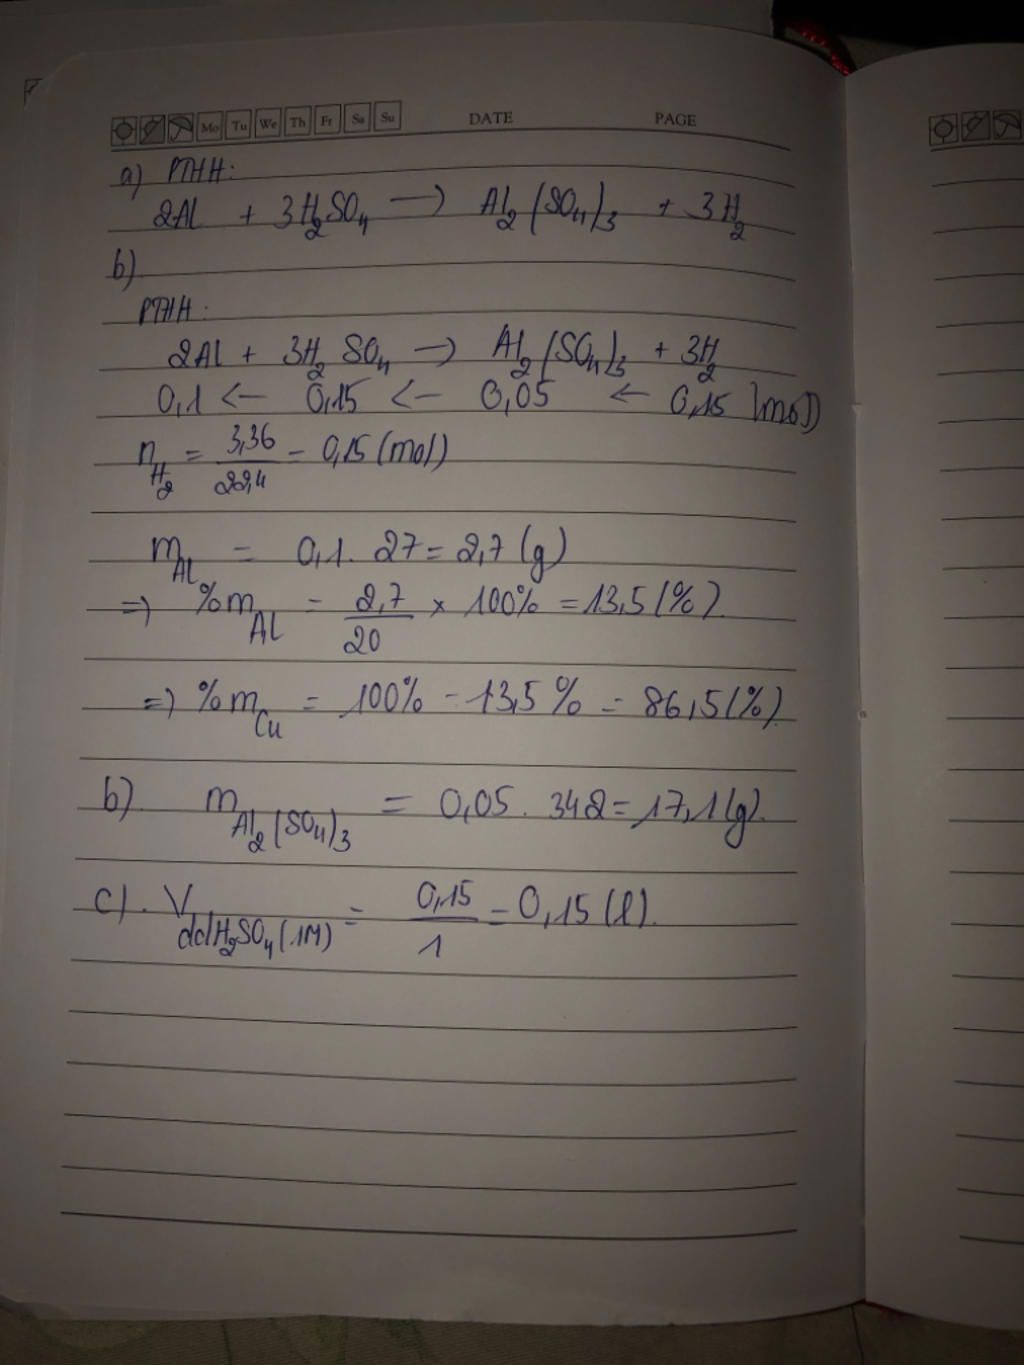 Mo Tu We Th Fr Sa Su DATE PAGE
a) PTHH:
2Al + 3H₂SO₄ → Al₂(SO₄)₃ + 3H₂
b)
PTHH:
2Al + 3H₂SO₄ → Al₂(SO₄)₃ + 3H₂
0,1 ← 0,15 ← 0,05 ← 0,15 (mol)
n_H₂ = 3,36/22,4 = 0,15 (mol)
m_Al = 0,1. 27 = 2,7 (g)
=> %m_Al = 2,7/20 × 100% = 13,5 (%).
=> %m_Cu = 100% - 13,5% = 86,5 (%).
b). m_Al₂(SO₄)₃ = 0,05. 342 = 17,1 (g).
c). V_ddH₂SO₄(1M) = 0,15/1 = 0,15 (l).